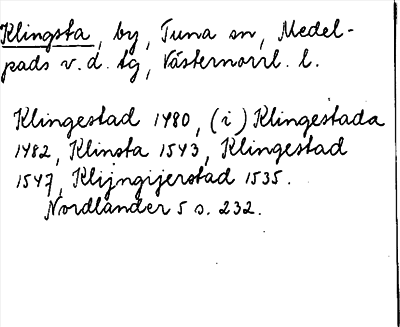 Klingsta, by, Tuna sn, Medel-
pads v. d. tg, Västernorrl. l.
Klingestad 1480, (i) Klingestada
1482, Klinsta 1543, Klingestad
1547, Klijngijerstad 1535.
Nordlander 5 s. 232.